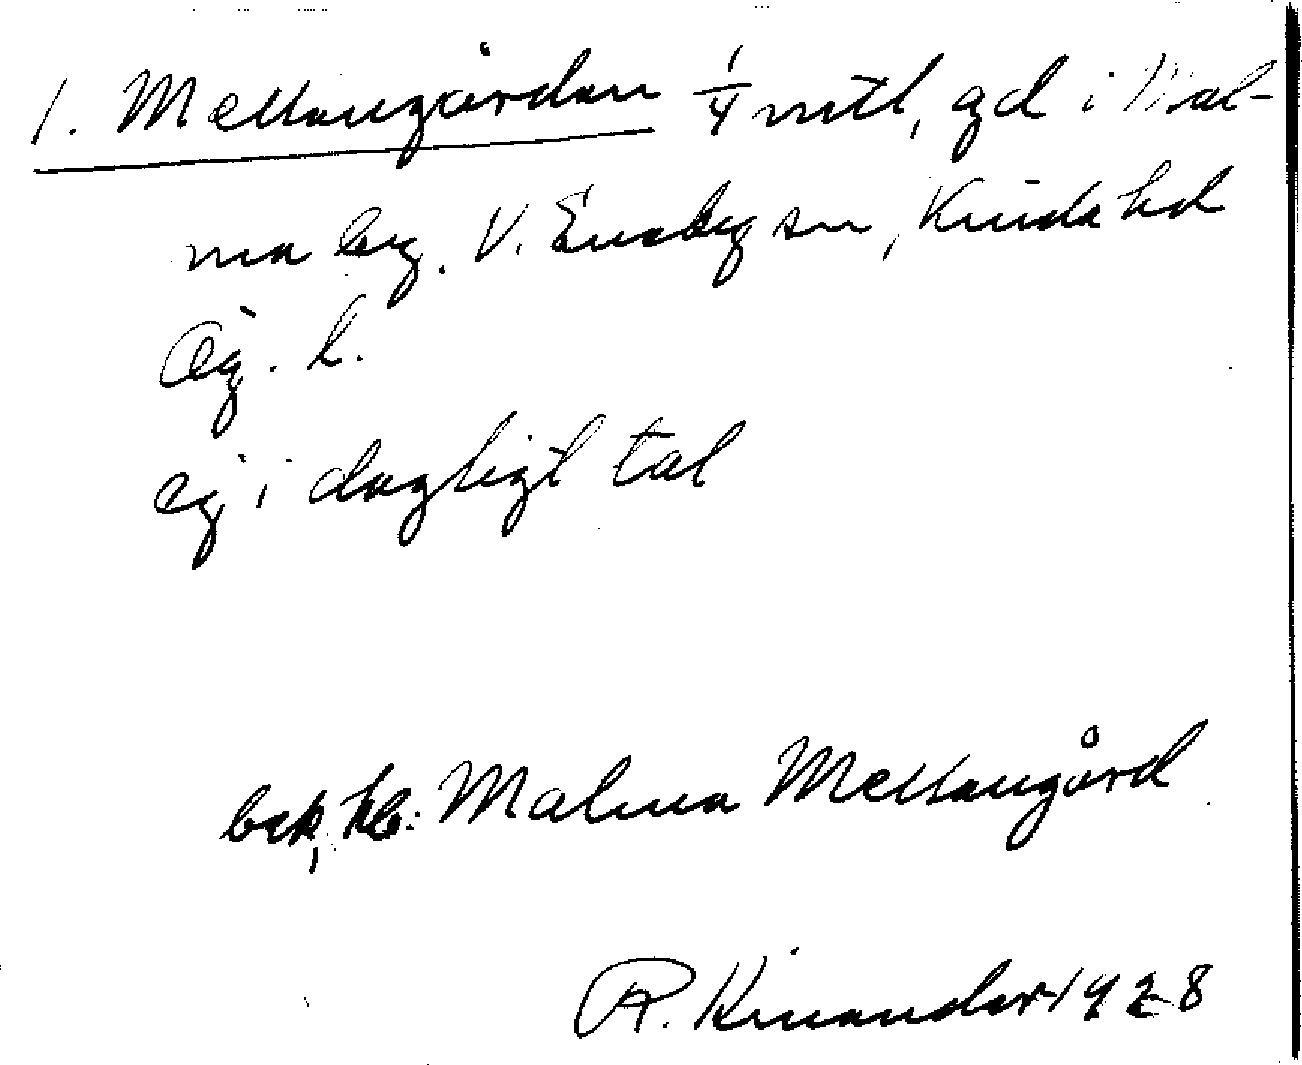 1. Mellangården 1/4 mtl, gd i Mal-
ma by. V. Eneby sn, Kinda hd
Äg. h.
ej i dagligt tal
bek, kb: Malma Mellangård
R. Kinander 1928